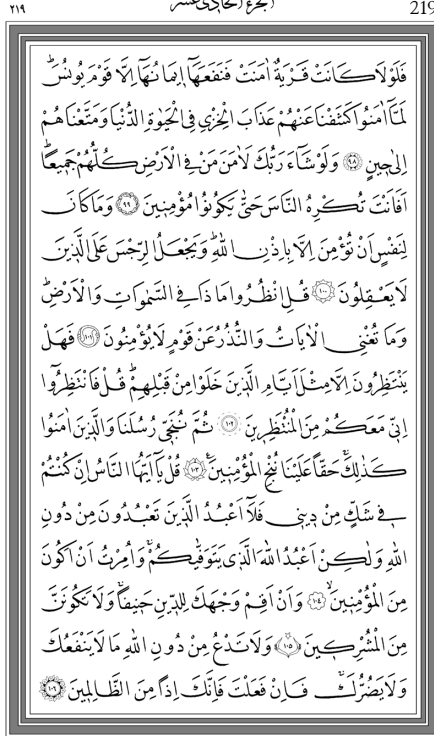 ٢١٩ الجزء الحادي عشر 219
فَلَوْلَا كَانَتْ قَرْيَةٌ اٰمَنَتْ فَنَفَعَهَٓا ا۪يمَانُهَٓا اِلَّا قَوْمَ يُونُسَۜ
لَمَّٓا اٰمَنُوا كَشَفْنَا عَنْهُمْ عَذَابَ الْخِزْيِ فِي الْحَيٰوةِ الدُّنْيَا وَمَتَّعْنَاهُمْ
اِلٰى ح۪ينٍ ﴿٩٨﴾ وَلَوْ شَٓاءَ رَبُّكَ لَاٰمَنَ مَنْ فِي الْاَرْضِ كُلُّهُمْ جَم۪يعًاۜ
اَفَاَنْتَ تُكْرِهُ النَّاسَ حَتّٰى يَكُونُوا مُؤْمِن۪ينَ ﴿٩٩﴾ وَمَا كَانَ
لِنَفْسٍ اَنْ تُؤْمِنَ اِلَّا بِاِذْنِ اللّٰهِۜ وَيَجْعَلُ الرِّجْسَ عَلَى الَّذ۪ينَ
لَا يَعْقِلُونَ ﴿١٠٠﴾ قُلِ انْظُرُوا مَاذَا فِي السَّمٰوَاتِ وَالْاَرْضِۜ
وَمَا تُغْنِي الْاٰيَاتُ وَالنُّذُرُ عَنْ قَوْمٍ لَا يُؤْمِنُونَ ﴿١٠١﴾ فَهَلْ
يَنْتَظِرُونَ اِلَّا مِثْلَ اَيَّامِ الَّذ۪ينَ خَلَوْا مِنْ قَبْلِهِمْۜ قُلْ فَانْتَظِرُٓوا
اِنّ۪ي مَعَكُمْ مِنَ الْمُنْتَظِر۪ينَ ﴿١٠٢﴾ ثُمَّ نُنَجّ۪ي رُسُلَنَا وَالَّذ۪ينَ اٰمَنُوا
كَذٰلِكَۚ حَقًّا عَلَيْنَا نُنْجِ الْمُؤْمِن۪ينَ۟ ﴿١٠٣﴾ قُلْ يَٓا اَيُّهَا النَّاسُ اِنْ كُنْتُمْ
ف۪ي شَكٍّ مِنْ د۪ين۪ي فَلَٓا اَعْبُدُ الَّذ۪ينَ تَعْبُدُونَ مِنْ دُونِ
اللّٰهِ وَلٰكِنْ اَعْبُدُ اللّٰهَ الَّذ۪ي يَتَوَفّٰيكُمْۚ وَاُمِرْتُ اَنْ اَكُونَ
مِنَ الْمُؤْمِن۪ينَۙ ﴿١٠٤﴾ وَاَنْ اَقِمْ وَجْهَكَ لِلدّ۪ينِ حَن۪يفًاۚ وَلَا تَكُونَنَّ
مِنَ الْمُشْرِك۪ينَ ﴿١٠٥﴾ وَلَا تَدْعُ مِنْ دُونِ اللّٰهِ مَا لَا يَنْفَعُكَ
وَلَا يَضُرُّكَۚ فَاِنْ فَعَلْتَ فَاِنَّكَ اِذًا مِنَ الظَّالِم۪ينَ ﴿١٠٦﴾